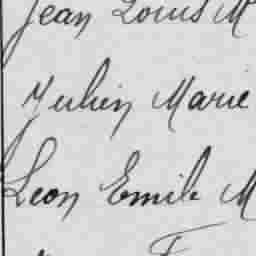 Jean Louis M
Julien Marie
Leon Emile M